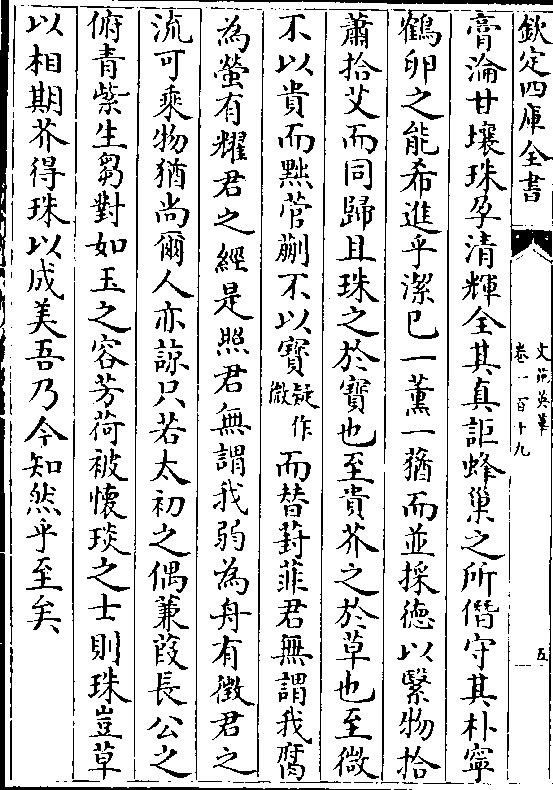 欽定四庫全書
文苑英華
卷一百十九
五
膏淪甘壤珠孕清輝全其真詎蜂巢之所僭守其朴寧
鶴卵之能希進乎潔已一薰一猶而並採德以繄物拾
蕭拾艾而同歸且珠之於寶也至貴芥之於草也至微
不以貴而黜菅蒯不以寶疑作微而替葑菲君無謂我腐
為螢有耀君之經是照君無謂我弱為舟有徵君之
流可乘物猶尚爾人亦諒只若太初之偶蒹葭長公之
俯青紫生芻對如玉之容芳荷被懷琰之士則珠豈草
以相期芥得珠以成美吾乃今知然乎至矣